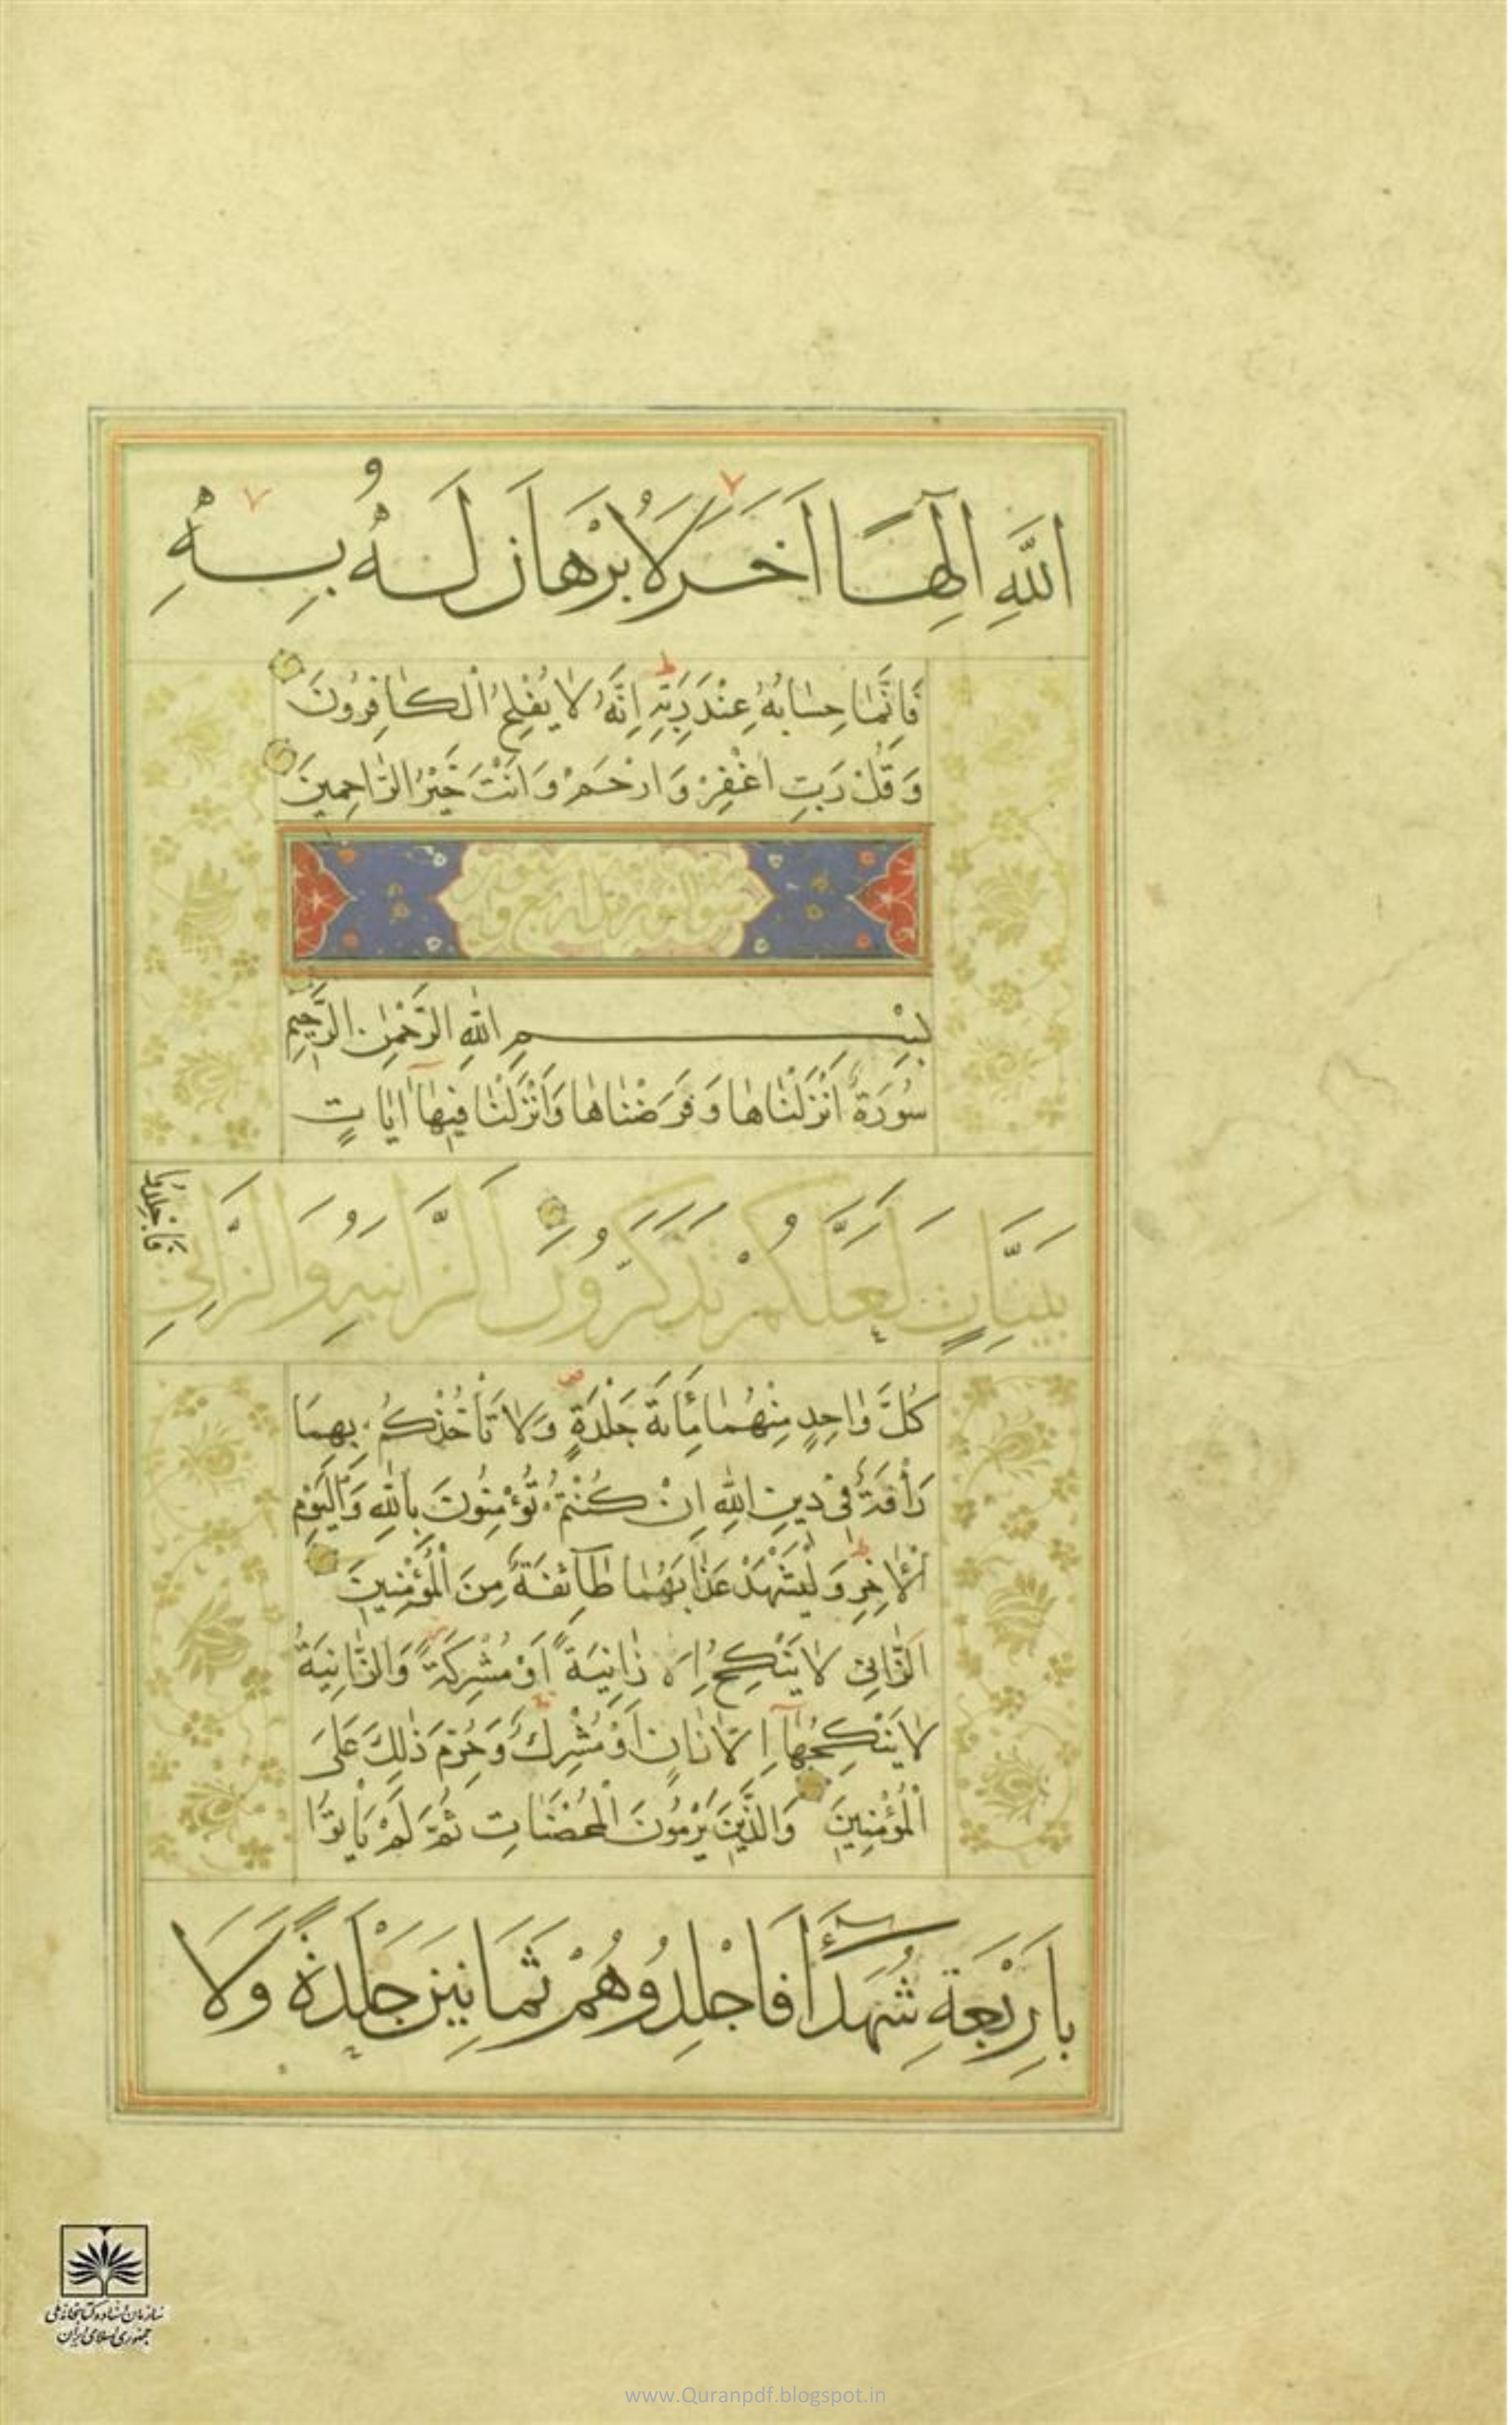 اللَّهِ اِلٰهًا اٰخَرَ لَا بُرْهَانَ لَهُ بِهِ
فَاِنَّمَا حِسَابُهُ عِنْدَ رَبِّهِ اِنَّهُ لَا يُفْلِحُ الْكَافِرُونَ
وَقُلْ رَبِّ اغْفِرْ وَارْحَمْ وَاَنْتَ خَيْرُ الرَّاحِمِينَ
بِسْمِ اللَّهِ الرَّحْمٰنِ الرَّحِيمِ
سُورَةٌ اَنْزَلْنَاهَا وَفَرَضْنَاهَا وَاَنْزَلْنَا فِيهَا اٰيَاتٍ
بَيِّنَاتٍ لَعَلَّكُمْ تَذَكَّرُونَ اَلزَّانِيَةُ وَالزَّانِي
فَاجْلِدُوا
كُلَّ وَاحِدٍ مِنْهُمَا مِائَةَ جَلْدَةٍ وَلَا تَأْخُذْكُمْ بِهِمَا
رَأْفَةٌ فِي دِينِ اللَّهِ اِنْ كُنْتُمْ تُؤْمِنُونَ بِاللَّهِ وَالْيَوْمِ
الْاٰخِرِ وَلْيَشْهَدْ عَذَابَهُمَا طَائِفَةٌ مِنَ الْمُؤْمِنِينَ
اَلزَّانِي لَا يَنْكِحُ اِلَّا زَانِيَةً اَوْ مُشْرِكَةً وَالزَّانِيَةُ
لَا يَنْكِحُهَا اِلَّا زَانٍ اَوْ مُشْرِكٌ وَحُرِّمَ ذٰلِكَ عَلَى
الْمُؤْمِنِينَ وَالَّذِينَ يَرْمُونَ الْمُحْصَنَاتِ ثُمَّ لَمْ يَأْتُوا
بِاَرْبَعَةِ شُهَدَاءَ فَاجْلِدُوهُمْ ثَمَانِينَ جَلْدَةً وَلَا
سازمان اسناد و کتابخانه ملی
جمهوری اسلامی ایران
www.Quranpdf.blogspot.in